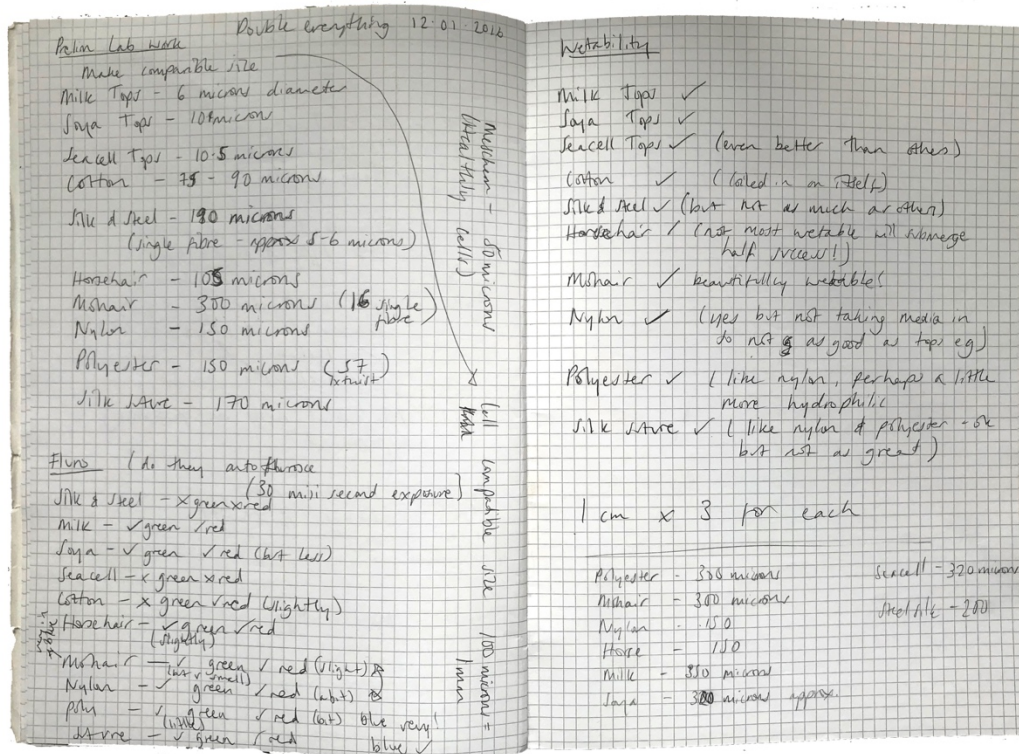 Double everything 12.01.2016
Prelim Lab work
Make comparible size
Milk Tops - 6 microns diameter
Soya Tops - 10 micron
Seacell Tops - 10.5 microns
Cotton - 75 - 90 microns
Silk & Steel - 190 microns
(single fibre - approx 5-6 microns)
Horsehair - 105 microns
Mohair - 300 microns (16 single fibre)
Nylon - 150 microns
Polyester - 150 microns (57
Silk - 170 microns
(do they auto
(30 mili second exposure)
Silk & Steel - x green x red
Milk - ✓ green / red
Soya - ✓ green ✓ red (but less)
Seacell - x green x red
Cotton - x green ✓ red (slightly)
Horsehair - ✓ green ✓ red
(slightly)
Mohair - ✓ green ✓ red (slight)
Nylon - ✓ green / red (a bit)
poly - ✓ green ✓ red (bit) blue very!
(little)
- ✓ green / red blue ✓
- 50 microns
(Healthy cells)
Cell compatible size 100 microns =
1mm
Wetability
Milk Tops ✓
Soya Tops ✓
Seacell Tops ✓ (even better than others)
Cotton ✓ (coiled in on itself)
Silk & Steel ✓ (but not as much as others)
Horsehair / (not most wetable will submerge
half success!)
Mohair ✓ beautifully wetable!
Nylon ✓ (yes but not taking media in
so not as good as tops eg)
Polyester ✓ (like nylon, perhaps a little
more hydrophilic
Silk ✓ (like nylon & polyester - ok
but not as great)
1 cm x 3 for each
Polyester - 300 microns
Mohair - 300 microns
Nylon - 150
Horse - 150
Milk - 350 microns
Soya - 320 microns approx.
Seacell - 320 microns
Steel silk - 200